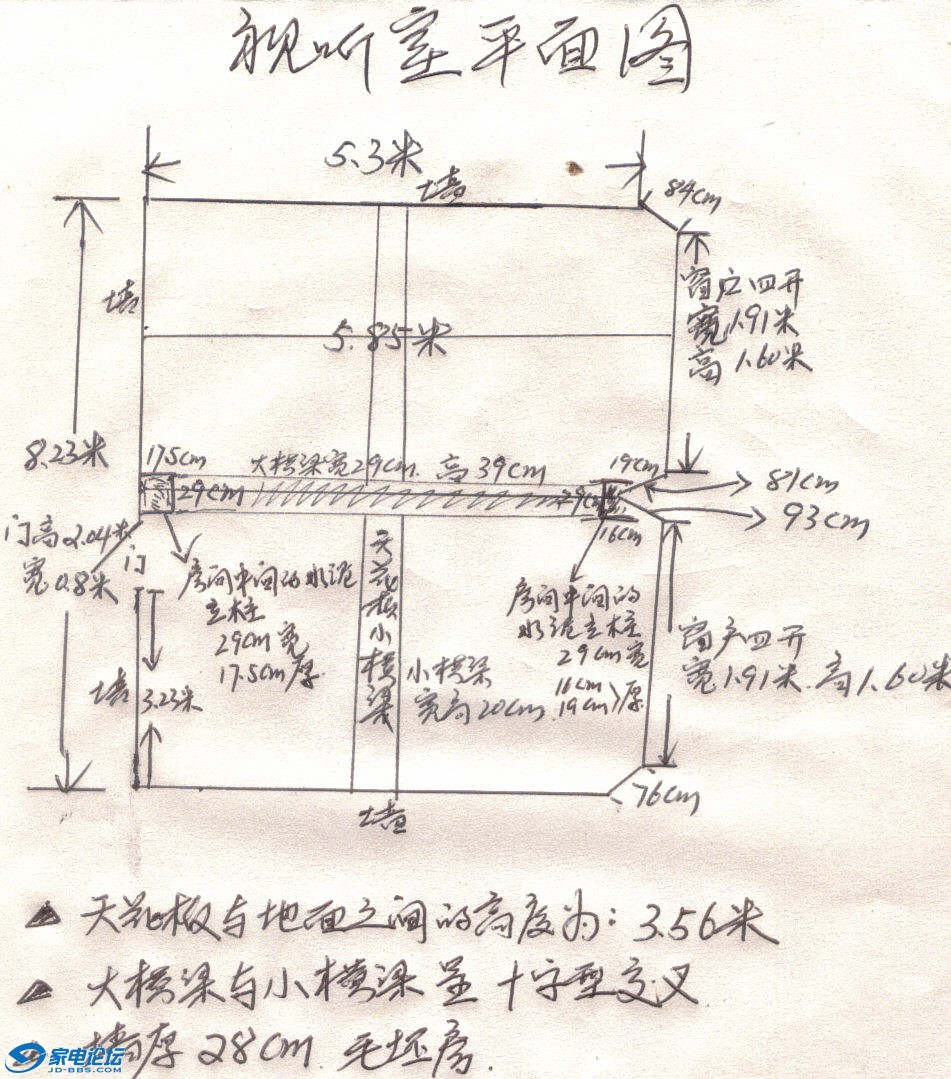 视听室平面图
5.3米
墙
84cm
墙
窗户四开
宽1.91米
高1.60米
5.85米
8.23米
17.5cm
大横梁宽29cm. 高39cm
19cm
81cm
29cm
29cm
93cm
16cm
门高2.04米
宽0.8米
门
房间中间的水泥
立柱
29cm宽
17.5cm厚
天花板小横梁
房间中间的
水泥立柱
29cm宽
16cm
19cm>厚
小横梁
宽高20cm
窗户四开
宽1.91米.高1.60米
墙
3.23米
76cm
墙
天花板与地面之间的高度为:3.56米
大横梁与小横梁呈十字型交叉
墙厚28cm 毛坯房.
家电论坛
JD-BBS.COM